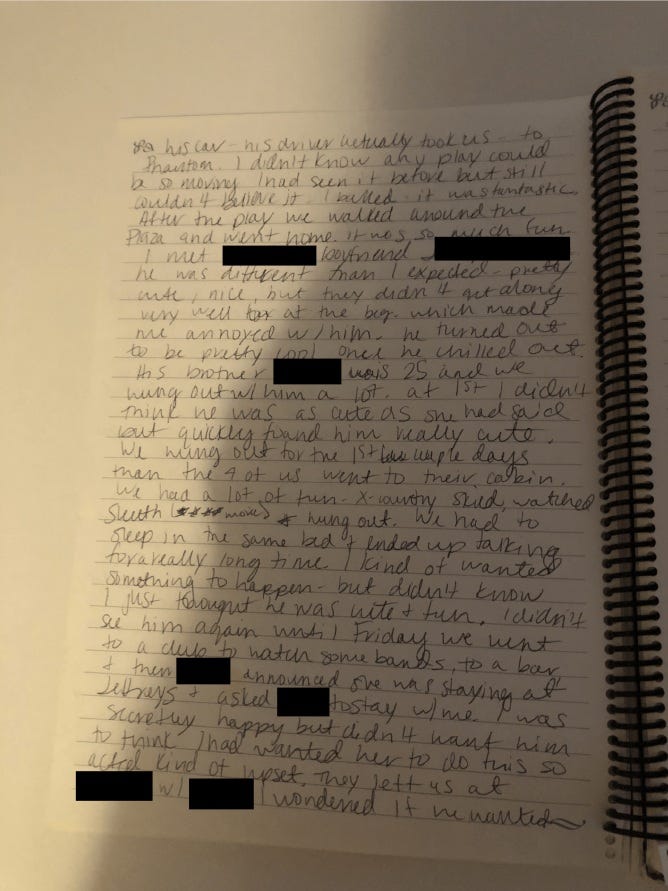 his car - his driver actually took us - to
Phantom. I didn't know any play could
be so moving I had seen it before but still
couldn't believe it. I balled - it was fantastic.
After the play we walked around the
Plaza and went home. it was so much fun
I met boyfriend
he was different than I expected - pretty
cute, nice, but they didn't get along
very well at the beg. which made
me annoyed w/him. he turned out
to be pretty cool once he chilled out.
His brother was 25 and we
hung out w/him a lot. at 1st I didn't
think he was as cute as she had said
but quickly found him really cute.
We hung out for the 1st couple days
than the 4 of us went to their cabin.
We had a lot of fun - X-country skied, watched
Sleuth movies hung out. We had to
sleep in the same bed & ended up talking
for a really long time I kind of wanted
something to happen - but didn't know
I just thought he was cute & fun. I didn't
see him again until Friday we went
to a club to watch some bands, to a bar
& then announced she was staying at
Jeffreys & asked to stay w/me. I was
secretly happy but didn't want him
to think I had wanted her to do this so
acted kind of upset. They left us at
w/ I wondered if he wanted